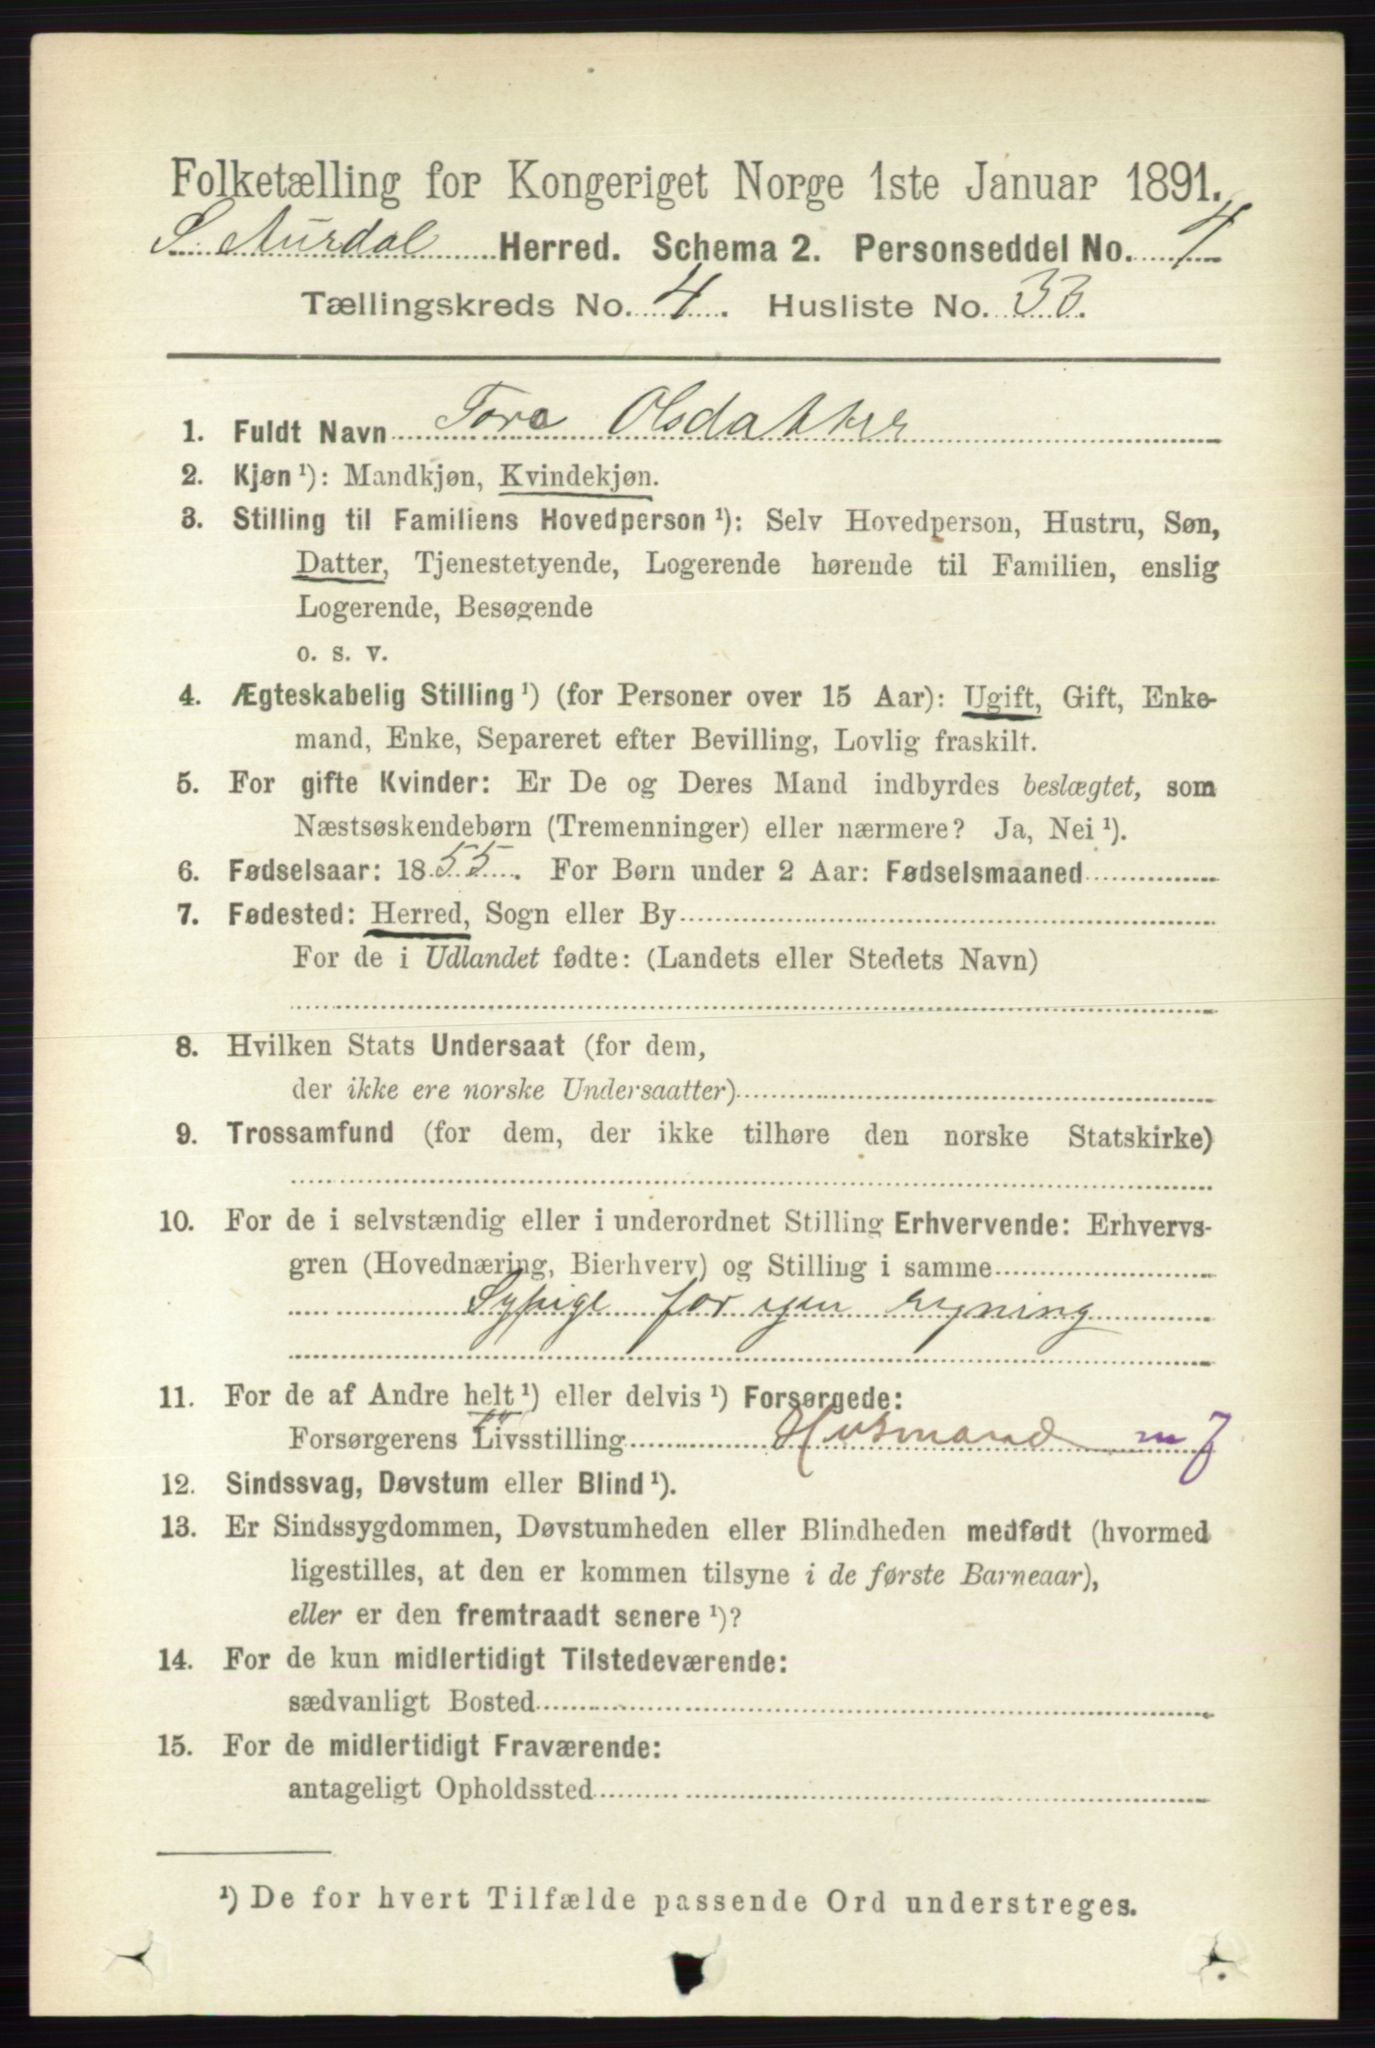 Folketælling for Kongeriget Norge 1ste Januar 1891.
S. Aurdal Herred. Schema 2. Personseddel No. 4
Tællingskreds No. 4. Husliste No. 33.
1. Fuldt Navn Tora Olsdatter
2. Kjøn ¹): Mandkjøn, Kvindekjøn.
3. Stilling til Familiens Hovedperson ¹): Selv Hovedperson, Hustru, Søn,
Datter, Tjenestetyende, Logerende hørende til Familien, enslig
Logerende, Besøgende
o. s. v.
4. Ægteskabelig Stilling ¹) (for Personer over 15 Aar): Ugift, Gift, Enke-
mand, Enke, Separeret efter Bevilling, Lovlig fraskilt.
5. For gifte Kvinder: Er De og Deres Mand indbyrdes beslægtet, som
Næstsøskendebørn (Tremenninger) eller nærmere? Ja, Nei ¹).
6. Fødselsaar: 1855. For Børn under 2 Aar: Fødselsmaaned
7. Fødested: Herred, Sogn eller By
For de i Udlandet fødte: (Landets eller Stedets Navn)
8. Hvilken Stats Undersaat (for dem,
der ikke ere norske Undersaatter)
9. Trossamfund (for dem, der ikke tilhøre den norske Statskirke)
10. For de i selvstændig eller i underordnet Stilling Erhvervende: Erhvervs-
gren (Hovednæring, Bierhverv) og Stilling i samme
Sypige for egen regning
11. For de af Andre helt ¹) eller delvis ¹) Forsørgede:
Forsørgerens Livsstilling Husmand m J
12. Sindssvag, Døvstum eller Blind ¹).
13. Er Sindssygdommen, Døvstumheden eller Blindheden medfødt (hvormed
ligestilles, at den er kommen tilsyne i de første Barneaar),
eller er den fremtraadt senere ¹)?
14. For de kun midlertidigt Tilstedeværende:
sædvanligt Bosted
15. For de midlertidigt Fraværende:
antageligt Opholdssted
¹) De for hvert Tilfælde passende Ord understreges.